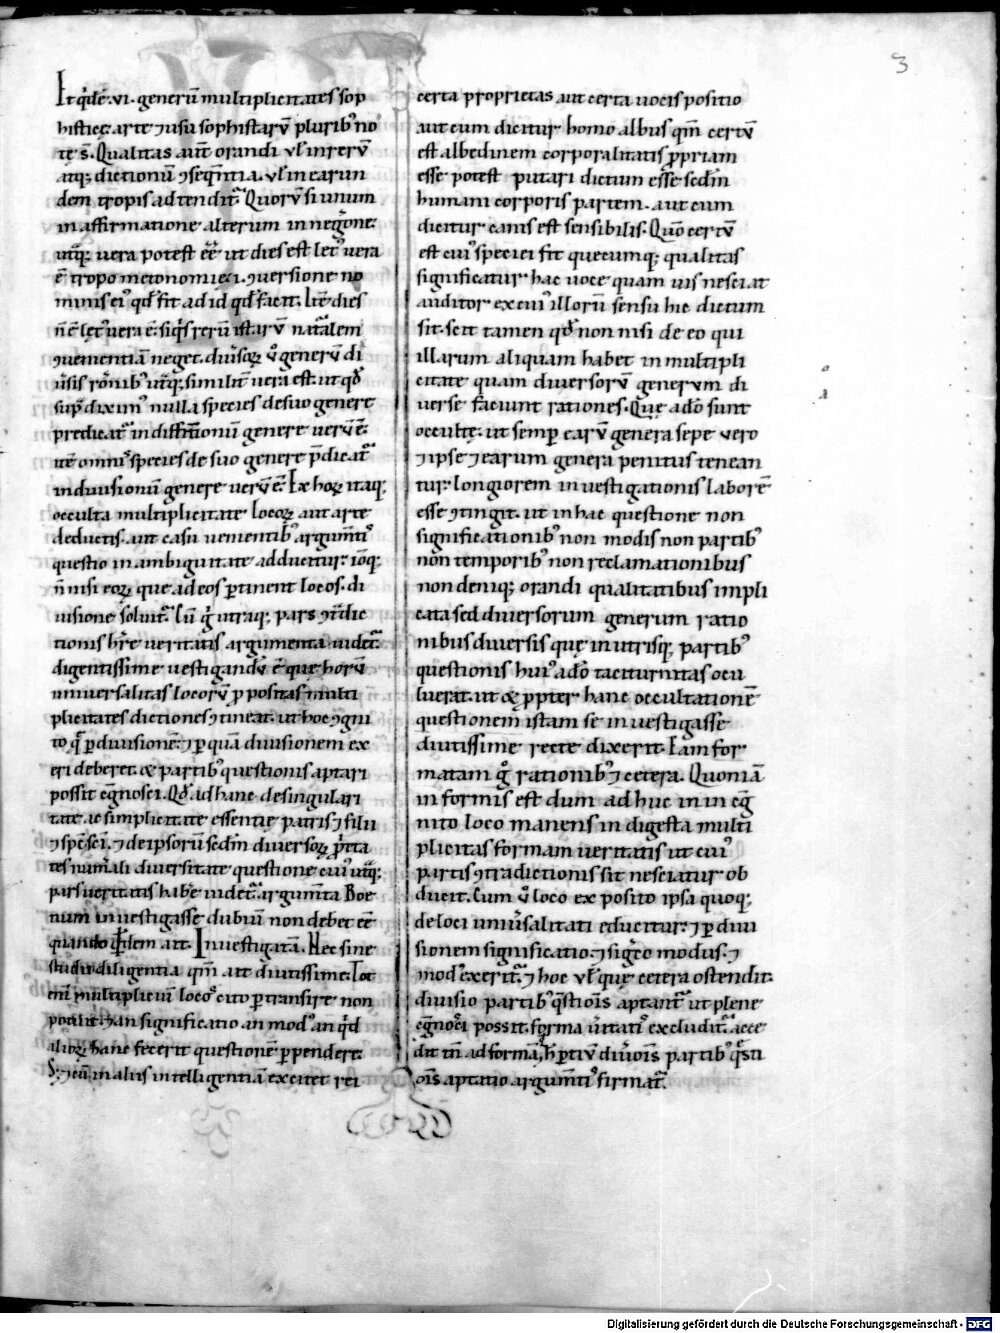 3
It q̄dē .vi. generū multiplicitates sop
histicę arte ⁊ usu sophistarū plurib᷒ no
tę s̄. Qualitas aut̄ orandi vł in rerū
atq; dictionū ꝯseq̄ntia. vł in earun
dem tropis ad tendit᷑. Quorū si unum
in affirmatione alterum in negōne.
utq; uera potest eē ut dies est let᷒ uera
ē tropo metonomie .i. ꝯuersione no
minis ei᷒ qđ fit ad id qđ facit. Itē dies
n̄ ē let᷒ uera ē. si q̄s rerū istarū nat᷑alem
ꝯuenientiā neget. diuīsoꝝ ū generū di
uīsis rōnib᷒ utq; similit̄ uera est. ut qđ
sup̄ diximus nulla species de suo genere
predicat᷑ in diffinitionū genere uerū ē.
itē omnis species de suo genere p̄dicat᷑
in diuisionū genere uerū ē. Ex hoꝝ itaq;
occulta multiplicitate locoꝝ aut arte
deductis. aut casu uenientib᷒ argum̄ti᷒
questio in ambiguitate adducitur. iōq;
n̄ nisi eoꝝ que ad eos ꝑtinent locos. di
uisione soluit᷑. Cū g̊ utraq; pars ꝯt᷑dic
tionis hr̄e ueritatis argumenta uidet᷑.
digentissime uestigandū ē que horū
uniuersalitas locorū ꝓpositas multi
plicitates dictiones ꝯtineat. ut hoc ꝯgni
to q̄ ꝑ diuisionē. ⁊ ꝑ quā diuisionem ex
eri deberet. & partib᷒ questionis aptari
possit cḡnosci. Qđ ad hanc de singulari
tate ac simplicitate essentie patris ⁊ filii
⁊ sp̄c sc̄i. ⁊ de ipsorū sc̄dm diuersoꝝ ꝓp̄ta
tes num̄ali diuersitate questione cui᷒ utq;
pars ueritatis habe uidet᷑ argum̄ta Boe
tium inuestigasse dubiū non debet eē
quando q̄dem ait. Inuestigatā. Nec sine
studii diligentia qm̄ ait diutissime. Tot
enī multipliciū loco᷒ cito ꝑtransire non
potuit. an significatio an mod᷒ an q̄d
alioꝝ hanc fecerit questionē ꝑpendere.
S; ⁊ cū in aliis intelligentiā excitet rei
certa proprietas aut certa uocis positio
aut cum dicitur homo albus qm̄ certū
est albedinem corporalitatis ꝓpriam
esse potest putari dictum esse sc̄dm
humani corporis partem. aut cum
dicitur canis est sensibilis. Quō certū
est cui᷒ speciei sit quecumq; qualitas
significatur hac uoce quam uis nesciat
auditor ex cui᷒ illorū sensu hic dictum
sit. scit tamen qđ non nisi de eo qui
illarum aliquam habet in multipli
citate quam diuersorū generum di
uerse faciunt rationes. Que adō sunt
occultę. ut semꝑ earū genera sepe uero
⁊ ipse ⁊ earum genera penitus tenean
tur. longiorem inuestigationis laborē
esse ꝯtingit. ut in hac questione non
significationib᷒ non modis non partib᷒
non temporib᷒ non reclamationibus
non deniq; orandi qualitatibus impli
cata sed diuersorum generum ratio
nibus diuersis quę in utrisq; partib᷒
questionis hui᷒ adō taciturnitas ocu
luerat. ut & ꝓpter hanc occultationē
questionem istam se inuestigasse
diutissime recte dixerit. Tam for
matam g̊ rationib᷒ ⁊ cetera. Quoniā
in formis est dum ad huc in in cḡ
nito loco manens in digesta multi
plicitas formam ueritatis ut cui᷒
partis ꝯtradictionis sit nesciatur ob
ducit. Cum ū loco ex posito ipsa quoq;
de loci uniūsalitati educitur. ⁊ ꝑ diui
sionem significatio. ⁊ siḡtō modus. ⁊
mod᷒ exerit᷑. ⁊ hoc vł que cetera ostendit.
diuisio partib᷒ q̄stiōis aptant᷑ ut plene
cḡnosci possit. forma ūitati᷒ excludit᷑. acce
dit tn̄ ad formā, ꝑ diuiōis partib᷒ q̄sti
ōis aptatio argum̄ti᷒ firmat᷑.
Digitalisierung gefördert durch die Deutsche Forschungsgemeinschaft - DFG